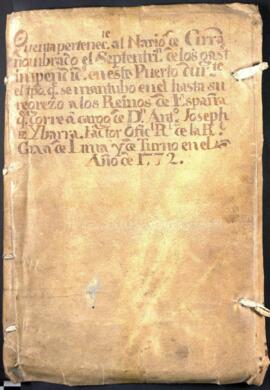 te
Quenta pertenec. al Nario. de Grrã
nombrado el Septentrl. de los gast
impendic. en este Puerto durte.
el tpo. q. se mantubo en el hasta su
regrezo a los Reinos de España
q. corre a cargo de Dn. Anto. Joseph
de Ybarra Factor Ofic. Rl. de la Rl.
Caxa de Lima y de Turno en el
Año de 1772.